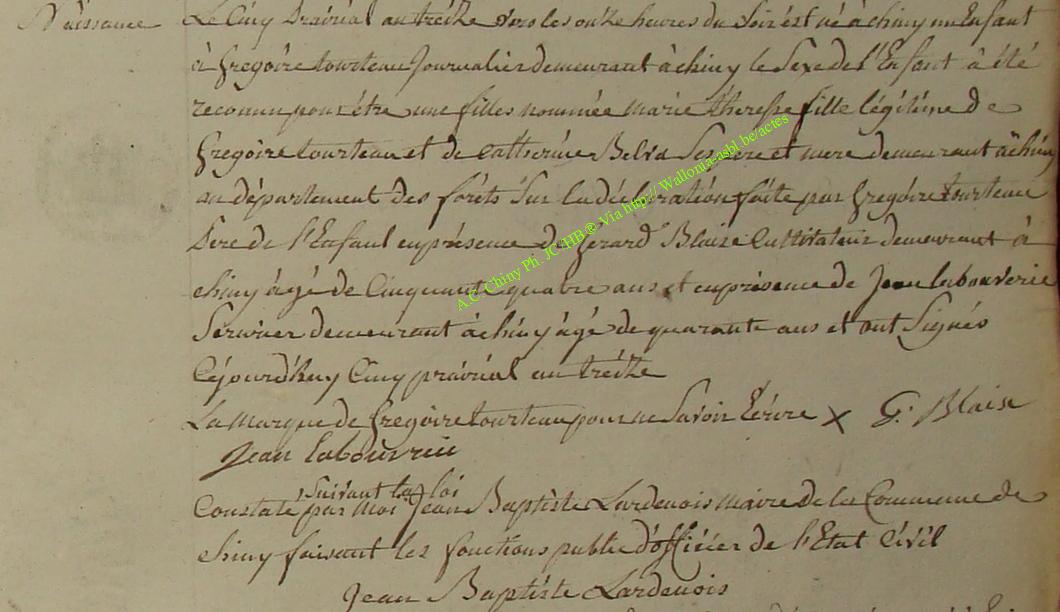 Naissance
Le Cinq prairial an treitze vers les onze heures du Soir est né à chiny un Enfant
à fregoire tourteau Journalier demeurant à chiny le Sexe de l'Enfant à été
reconnu pour être une filles nommée marie théresse fille légitime de
fregoire tourteau et de Catherine pere et mere demeurant à chiny
au département des forêts Sur la déclaration faite par fregoire tourteau
Pere de l'Enfant en présence de gerard Blaise Cultivateur demeurant à
chiny âgé de Cinquante quatre ans et en présence de Jean labouverie
demeurant à chiny âgé de quarante ans et ont Signés
Cejourd'huy Cinq prairial an treitze
La marque de fregoire tourteau pour ne Savoir Ecrire X G: Blaise
Jean labouverie
Suivant la loi
Constaté par Moi Jean Baptiste Lardenois maire de la Commune de
chiny faisant les fonctions public d'officier de l'Etat Civil
Jean Baptiste Lardenois
A.C. Chiny Ph. JC HB® Via http:// Wallonia-asbl.be/actes